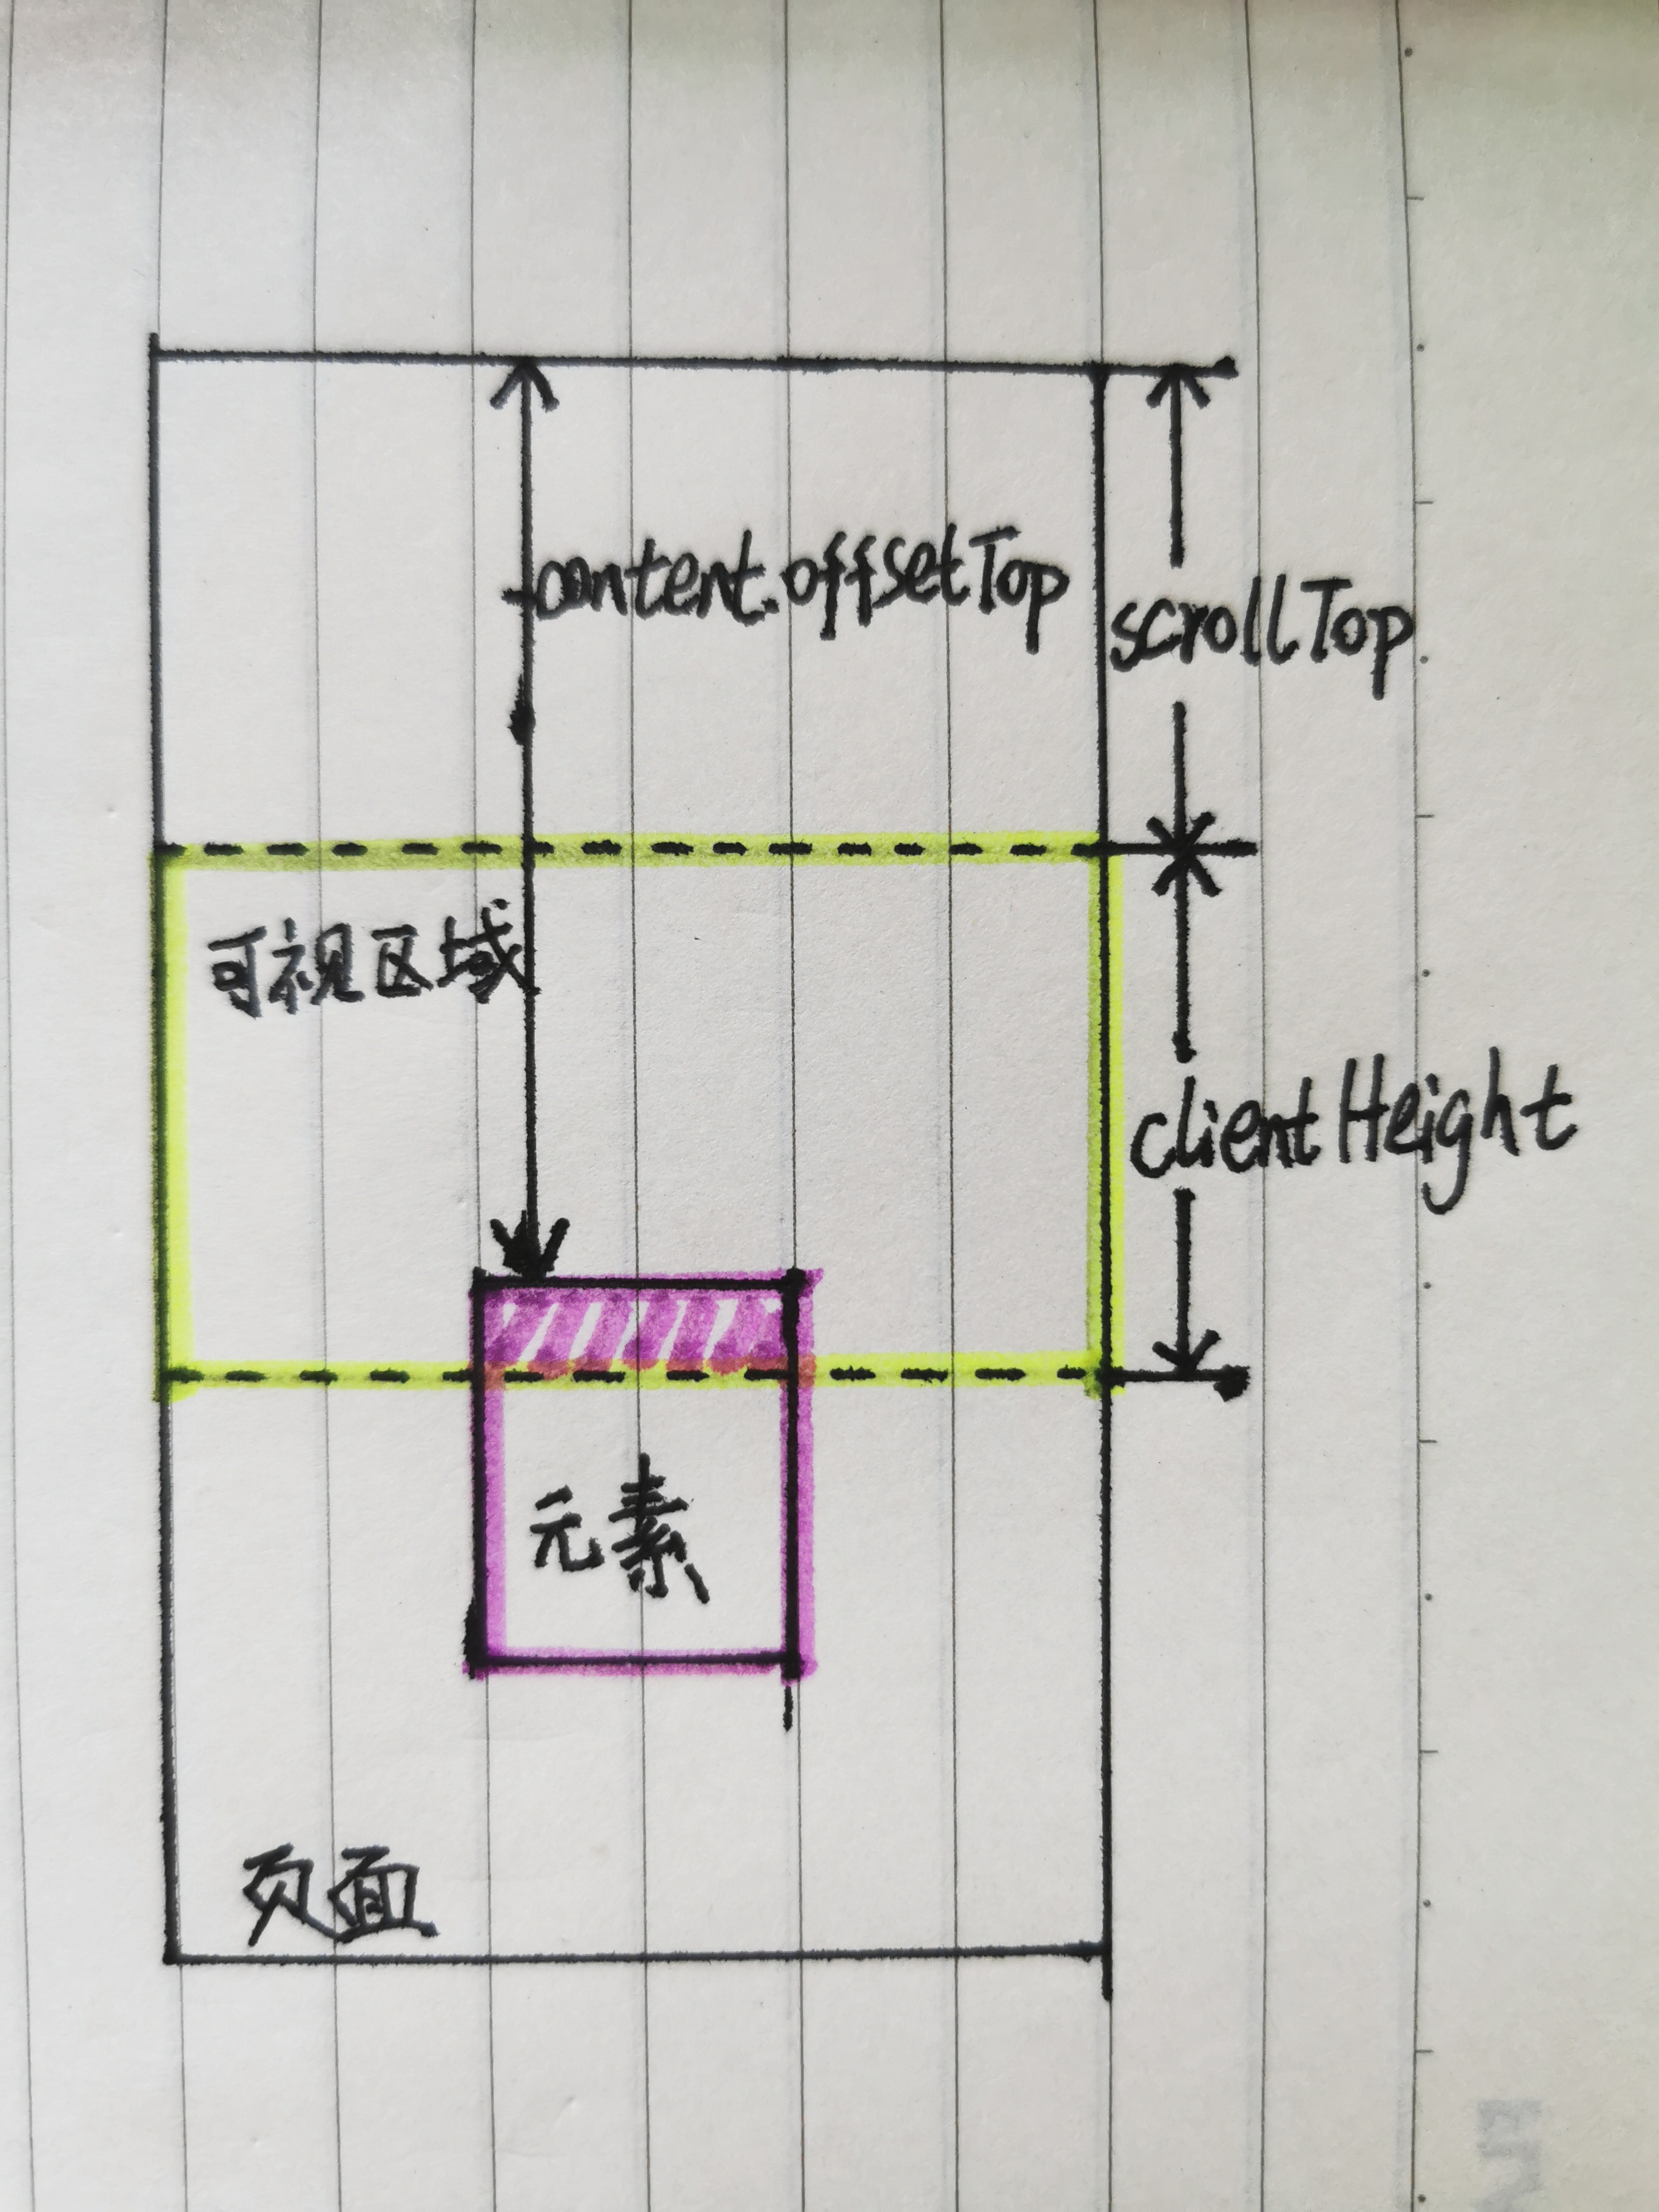 content.offsetTop
scrollTop
可视区域
clientHeight
元素
页面